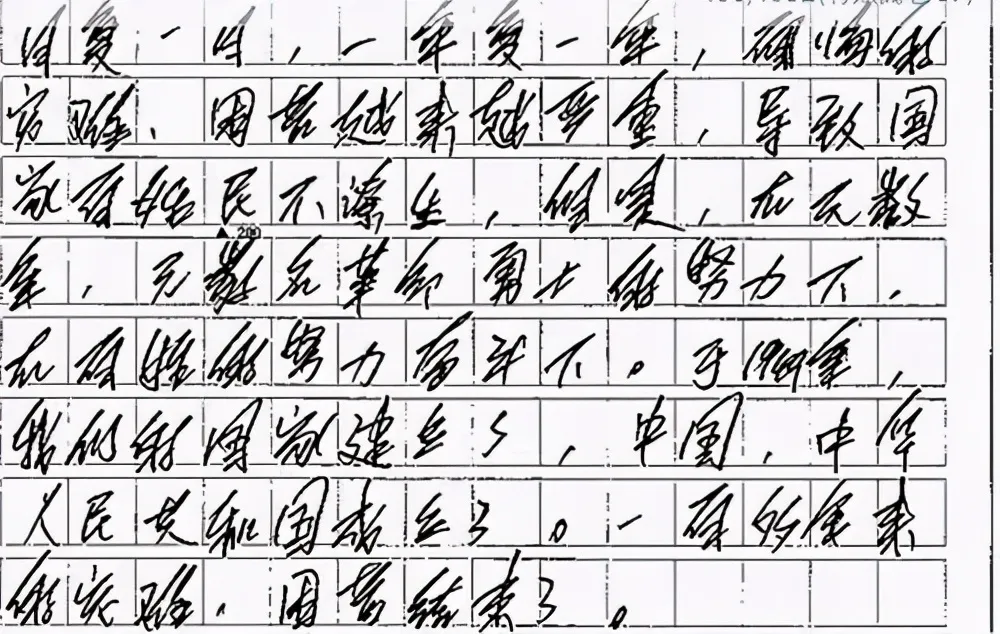 日复一日,一年复一年,的
灾难、困苦越来越严重,导致国
家百姓民不潦生,但是,在无数
200
年,无数名革命勇士的努力下,
在百姓的努力奋斗下。于1949年,
我们的国家建立了,中国,中华
人民共和国成立了。一百多年来
的灾难、困苦结束了。